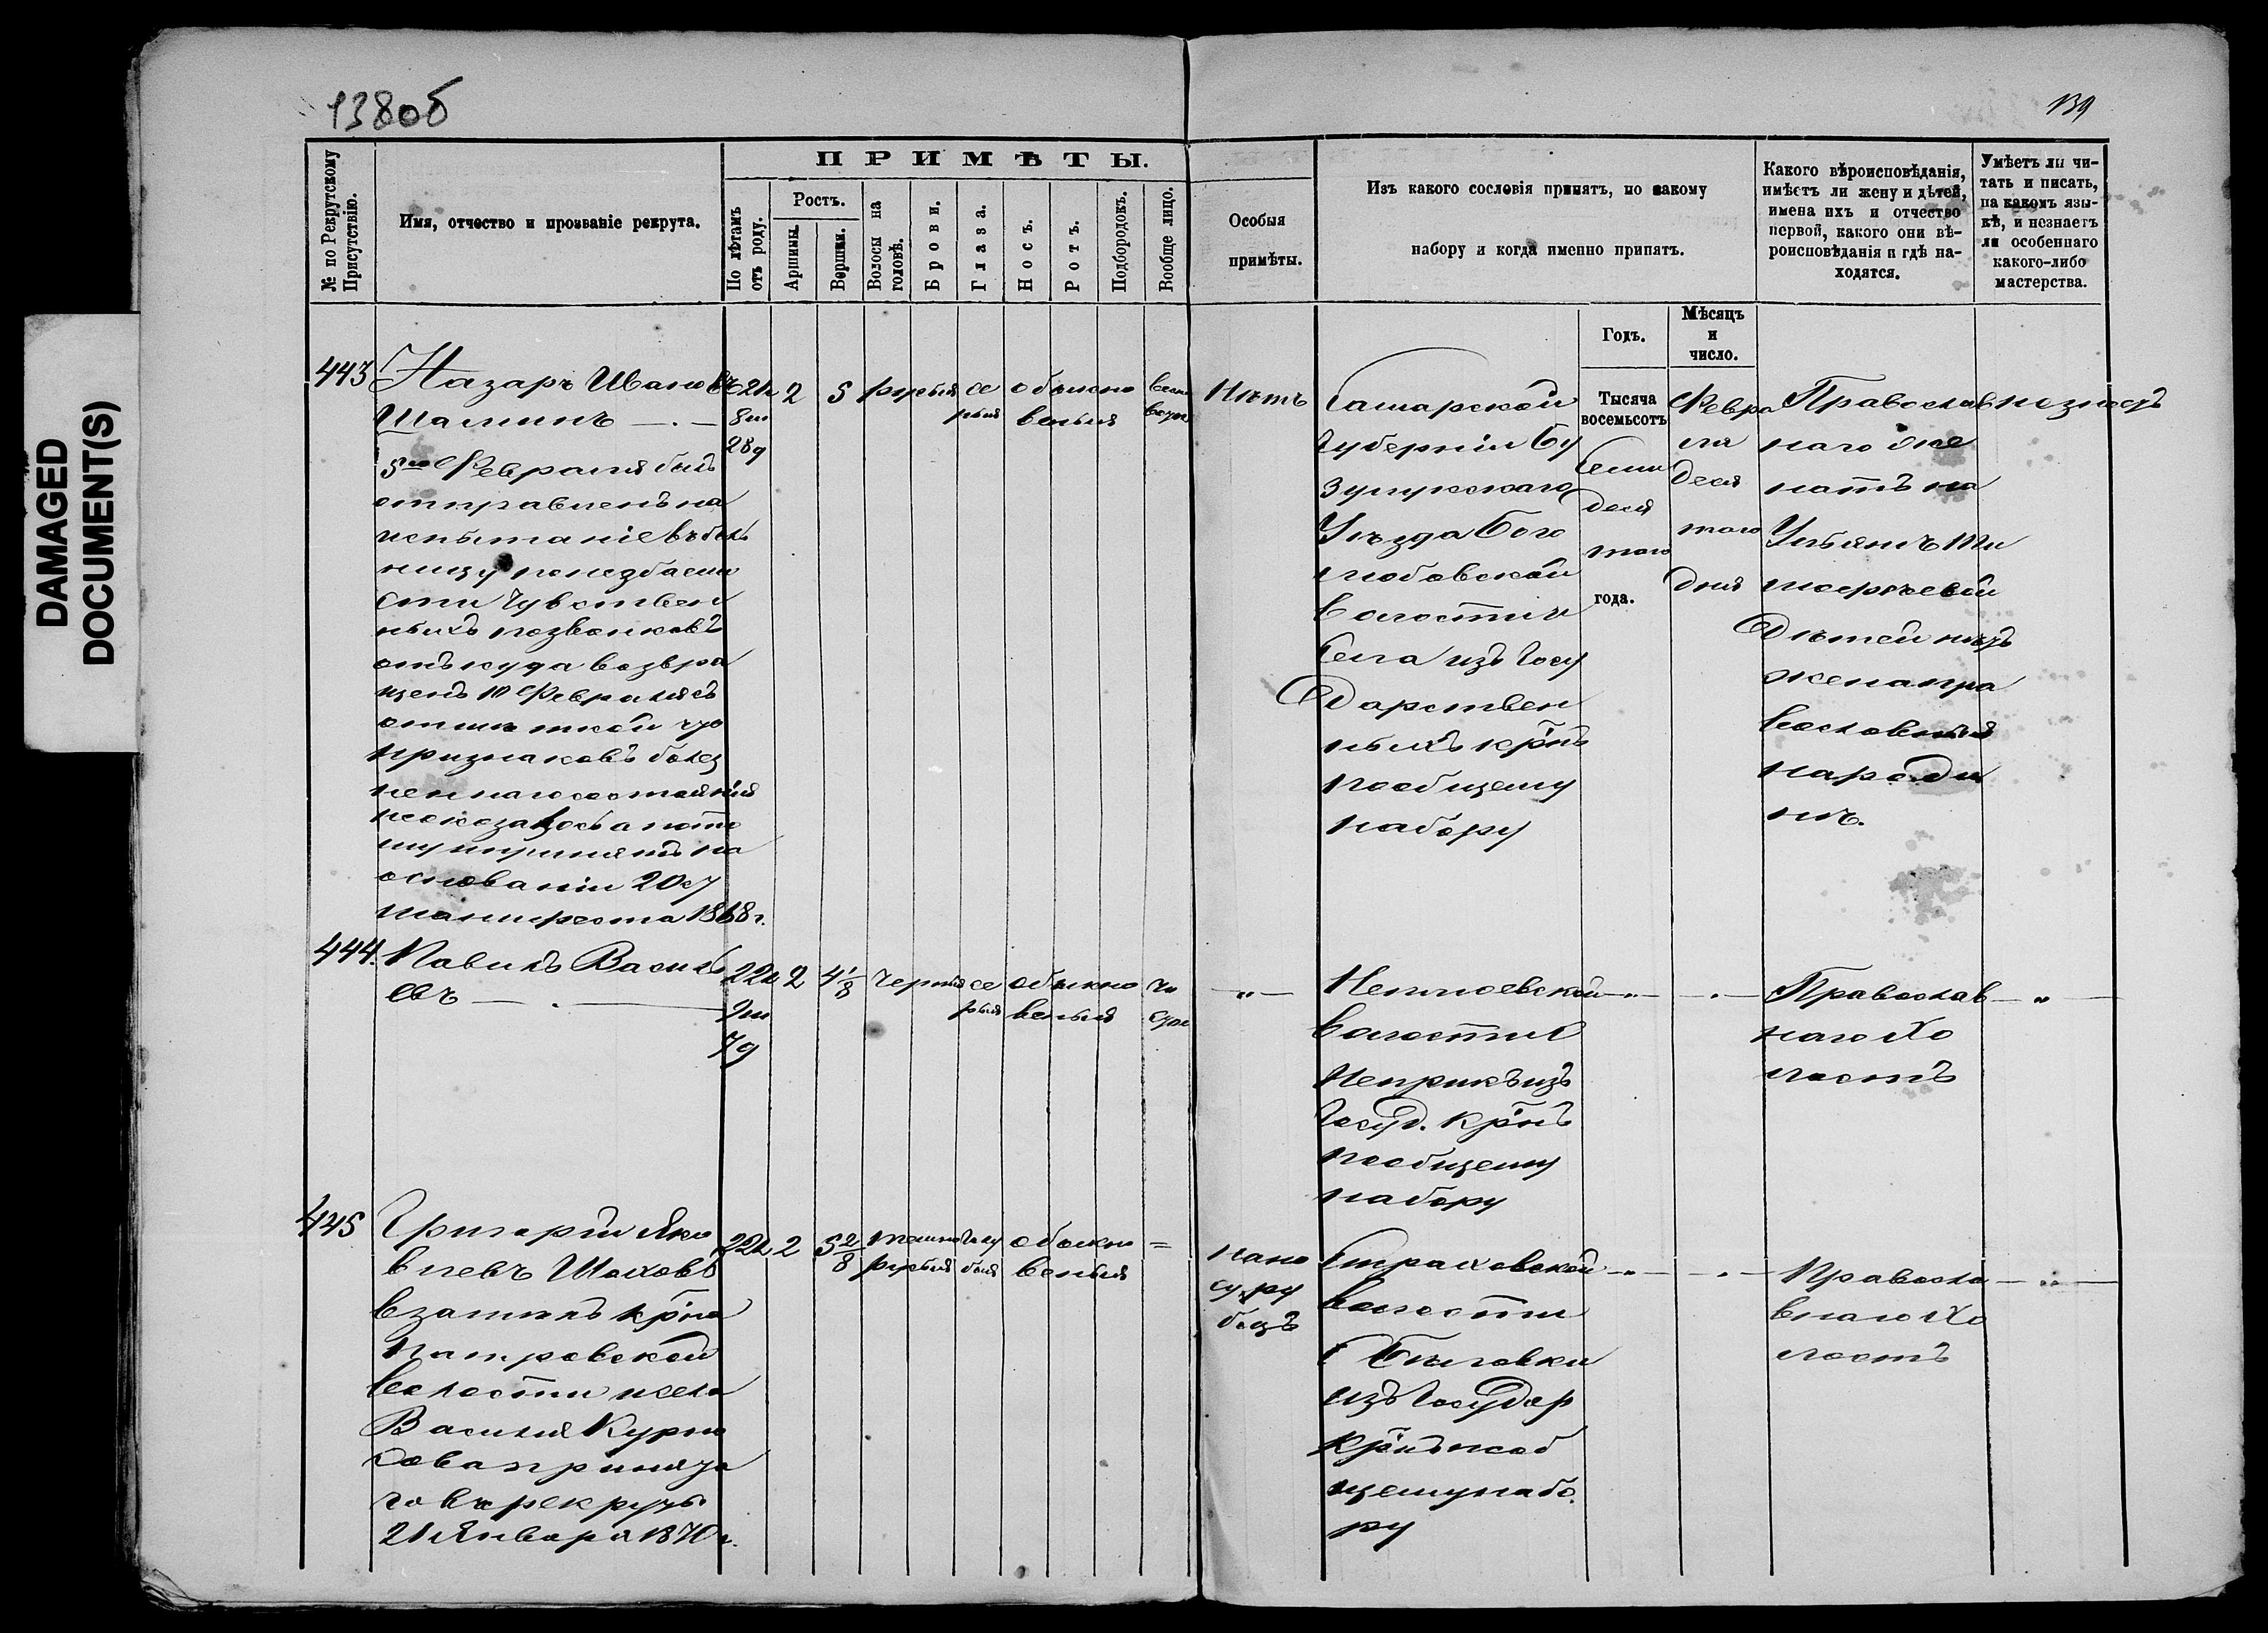 138об
139
DAMAGED
DOCUMENT(S)
№ по Рекрутскому Присутствію.
Имя, отчество и прозваніе рекрута.
ПРИМѢТЫ.
По лѣтамъ отъ роду.
Ростъ.
Аршины.
Вершки.
Волосы на головѣ.
Брови.
Глаза.
Носъ.
Ротъ.
Подбородокъ.
Вообще лицо.
Особыя
примѣты.
Изъ какого сословія принятъ, по какому
набору и когда именно принятъ.
Какого вѣроисповѣданія,
имѣетъ ли жену и дѣтей,
имена ихъ и отчество
первой, какого они вѣ-
роисповѣданія и гдѣ на-
ходятся.
Умѣетъ ли чи-
тать и писать,
на какомъ язы-
кѣ, и незнаетъ
ли особеннаго
какого-либо
мастерства.
Годъ.
Мѣсяцъ
и
число.
443
Назаръ Ивановъ
Шаминъ
5го Февраля былъ
отправленъ на
испытаніе въ боль
ницу
ныхъ позвонковъ
откуда возвра
щенъ 10 Февраля съ
отмѣткой что
признаковъ болез
неннаго состоянія
неоказалось а пото
му принятъ на
основаніи 20 ст
манифеста 1868 г.
22л
8м
28д
2
5
русыя
се
рыя
обыкно
веныя
Нѣтъ
Самарской
Губерніи Бу
зулукскаго
Уѣзда Бого
любовской
волости и
села изъ Госу
Дарствен
ныхъ крнъ
пообщему
набору
Тысяча
восемьсотъ
Семи
деся
таго
года.
Февра
ля
Деся
таго
дня
Православ
наго же
натъ на
Ульянѣ Ти
мофѣевой
Дѣтей нѣтъ
жена пра
вославныя
народи
нѣ.
незнаетъ
444.
Павилъ Василь
евъ
22л
2м
7д
2
4 1/8
черныя
се
рыя
обыкно
веныя
чи
стое
„
Неплюевской
волости С
изъ
Госуд. крнъ
пообщему
набору
„
Православ
наго Хо
лостъ
„
445
Григорій Яко
влевъ Шаховъ
взаменъ крна
Патровской
волости и села
Василія Курно
сова принята
го въ рекруты
21 Января 1870 г.
22л
2
5 2/8
темно
русыя
Голу
быя
обыкно
веныя
=
Страховской
волости
С
изъ Государ
крнъ пооб
щему набо.
ру
„
Правосла
внаго Хо
лостъ
„